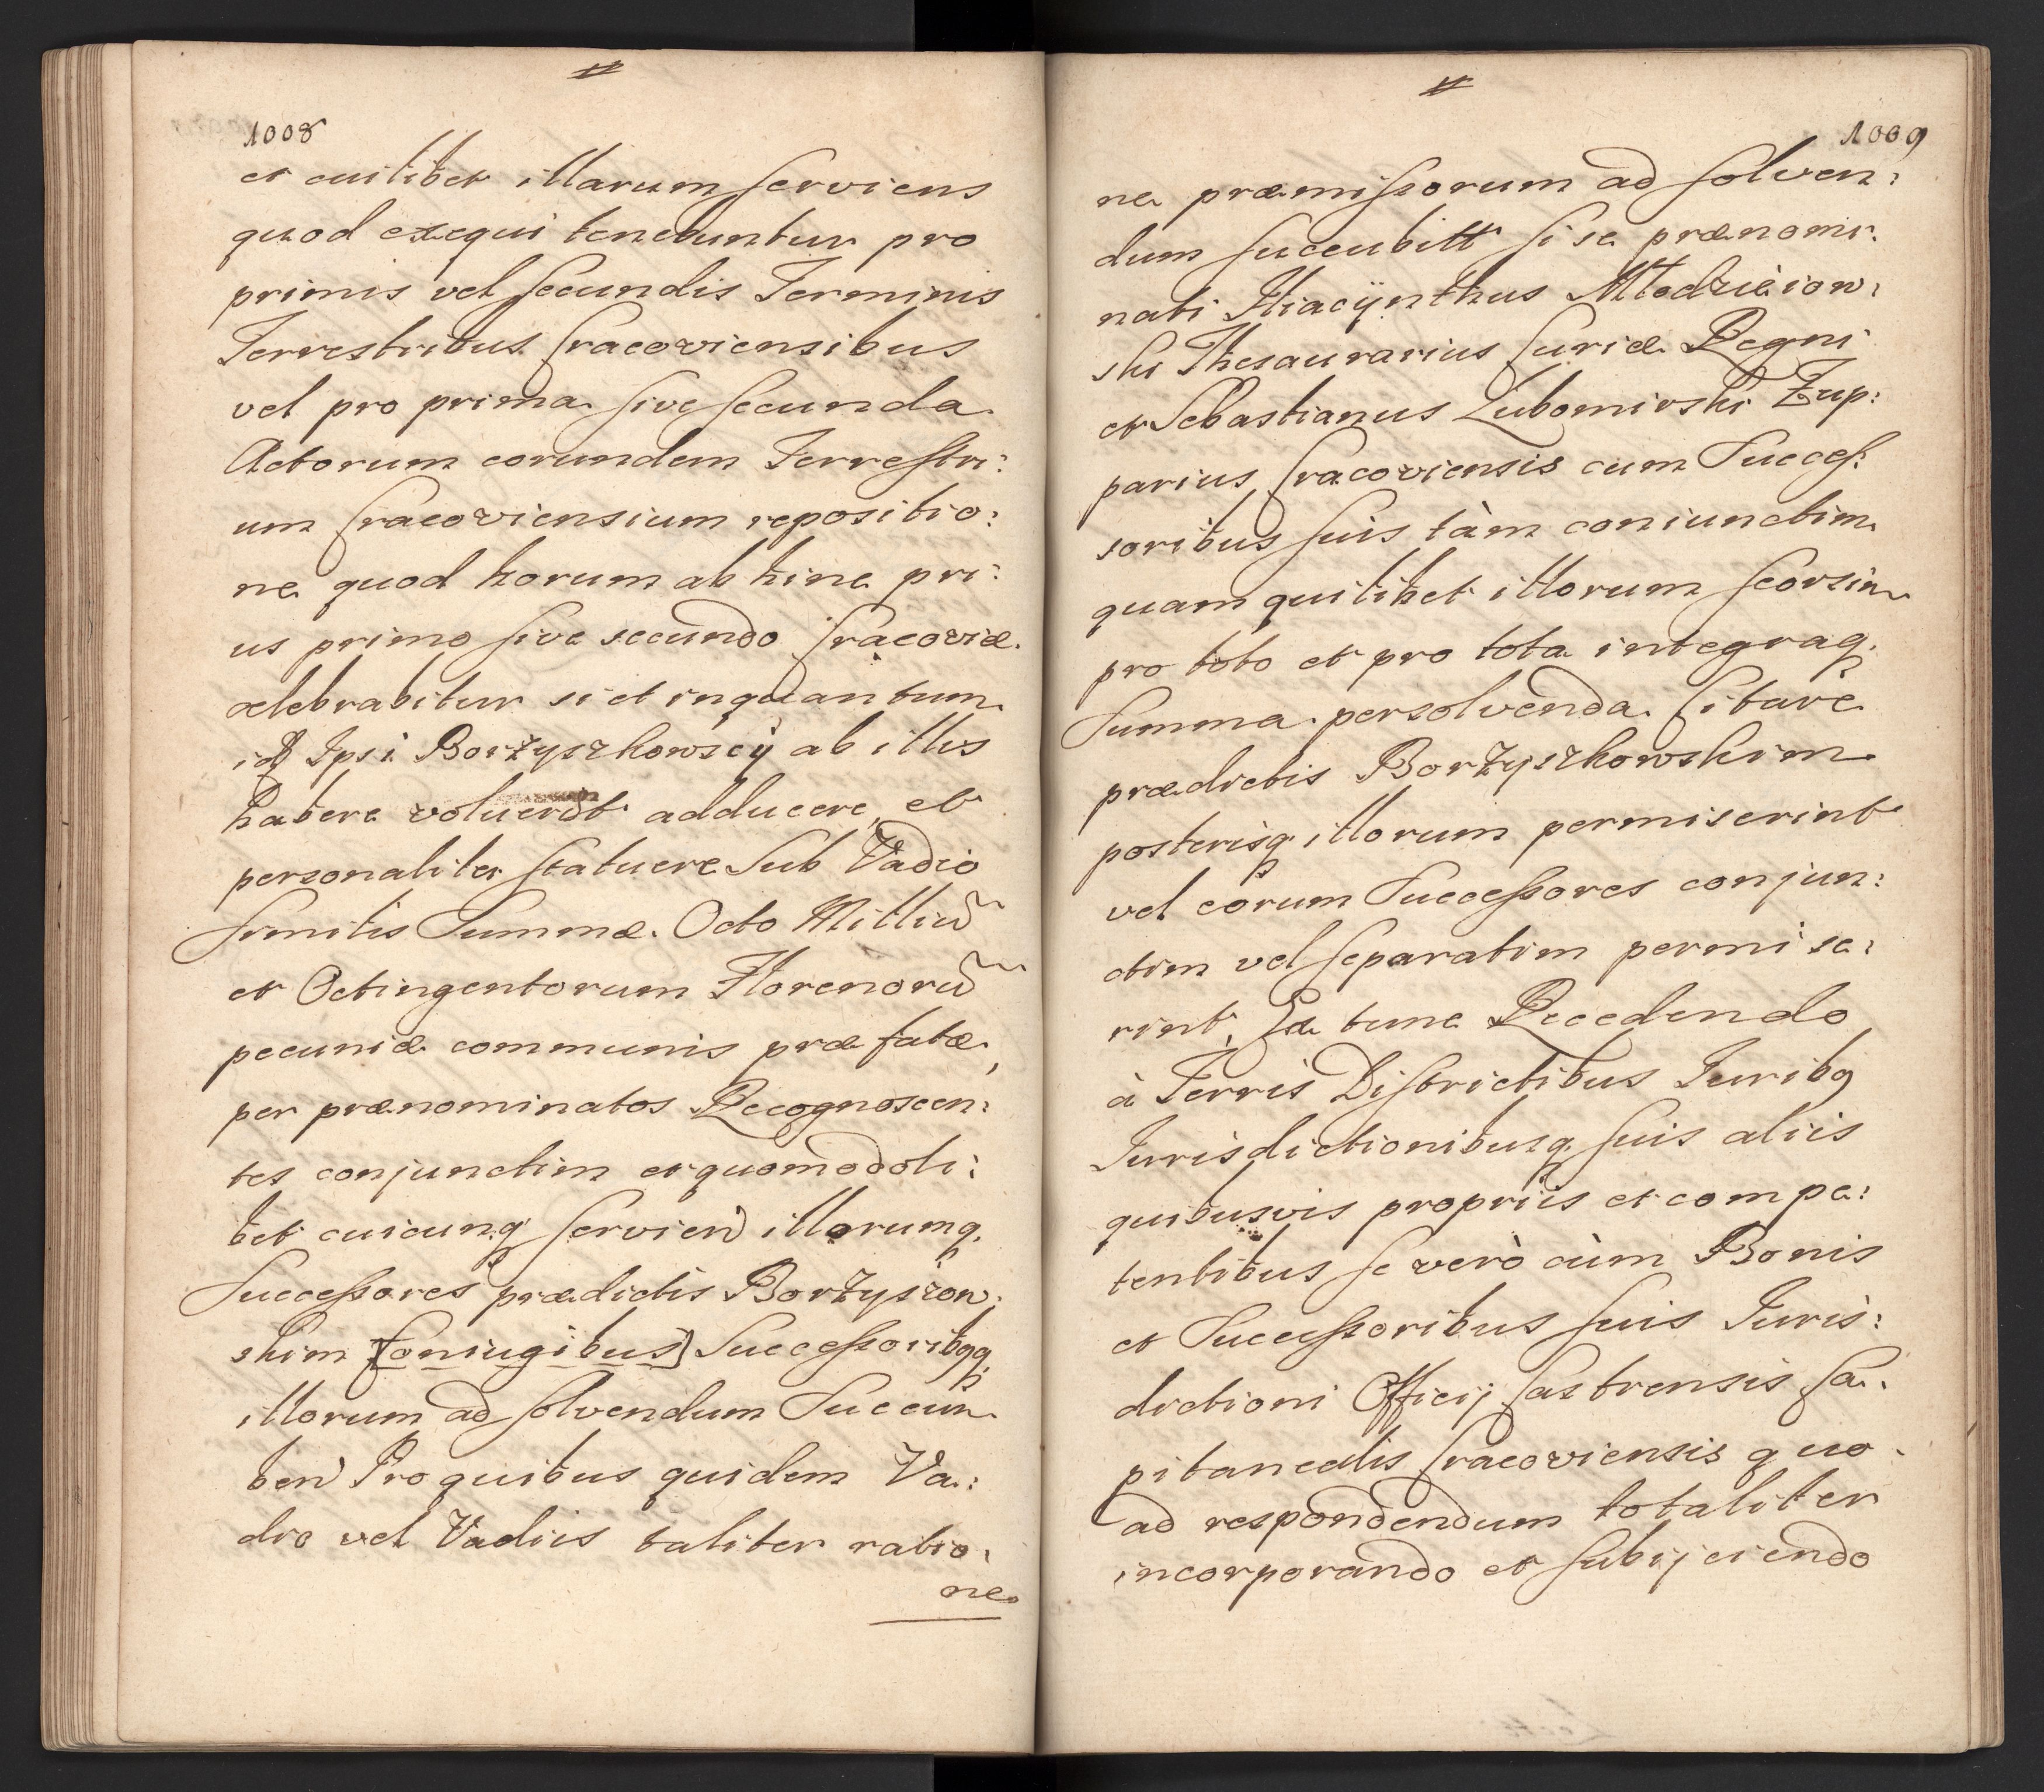 1008
et cuilibet illarum serviens
quod exequi tenebuntur pro
primis vel secundis Terminis
Terrestribus Cracoviensibus
vel pro prima sive secunda
Actorum eorundem Terrestri:
um Cracoviensium repositio:
ne quod horum ab hinc pri:
us primo sive secundo Cracoviæ
celebrabitur si et inquantum
id Ipsi Borżyszkowscÿ ab illis
habere voluerit adducere, et
personaliter statuere Sub Vadio
similis Summæ Octo Milliū
et Octingentorum Florenorū
pecuniæ communis præfatæ,
per prænominatos Recognoscen:
tes conjunctim et quomodoli:
bet cuicunq servien illorumq.
Successores prædictis Borżyszow:
skim [Coniugibus] Successoribqq.
illorum ad solvendum Succum
ben Pro quibus quidem Va:
dio vel Vadiis taliter ratio:
ne
1009
ne præmissorum ad solven:
dum succubitt si se prænomi:
nati Hiacÿnthus Młodzieiow:
ski Thesaurarius Curiæ Regni
et Sebastianus Lubomirski Żup:
parius Cracoviensis cum Succes:
soribus suis tàm coniunctim
quam quilibet illorum seorsim
pro toto et pro tota integraq.
Summa persolvenda Citare
prædictis Borżyszkowskim
posterisq illorum permiserint
vel eorum Successores conjun:
ctim vel separatim permise:
rint, Ex tunc Recedendo
à Terris Districtibus Juribq
Jurisdictionibusq suis aliis
quibusvis propriis et compe:
tentibus se verò cùm Bonis
et Successoribus suis Juris:
dictioni Officij Castrensis Ca:
pitanealis Cracoviensis quo
ad respondendum totaliter
incorporando et subijciendo